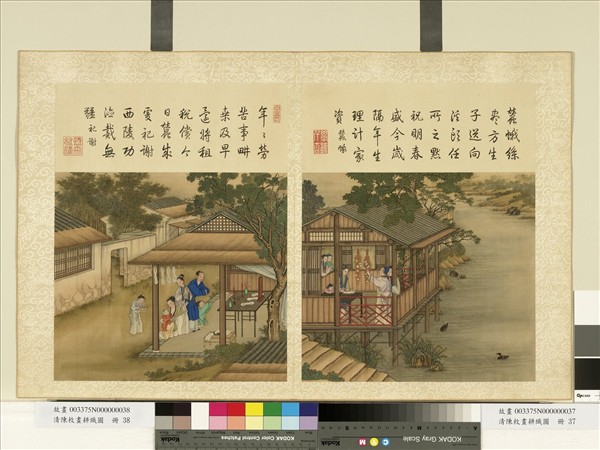 蠶蛾絲
盡方生
子送向
溪頭任
所之默
祝明春
盛今歲
隔年生
理計家
資 蠶蛾
年〻勞
苦事畊
桑及早
還將租
稅償今
日蠶成
虔祀謝
西陵功
德戴無
疆 祀謝
故畫 003375N000000038
清陳枚畫耕織圖 冊 38
故畫 003375N000000037
清陳枚畫耕織圖 冊 37
KODAK Color Control Patches
KODAK Gray Scale
Kodak
C Y M